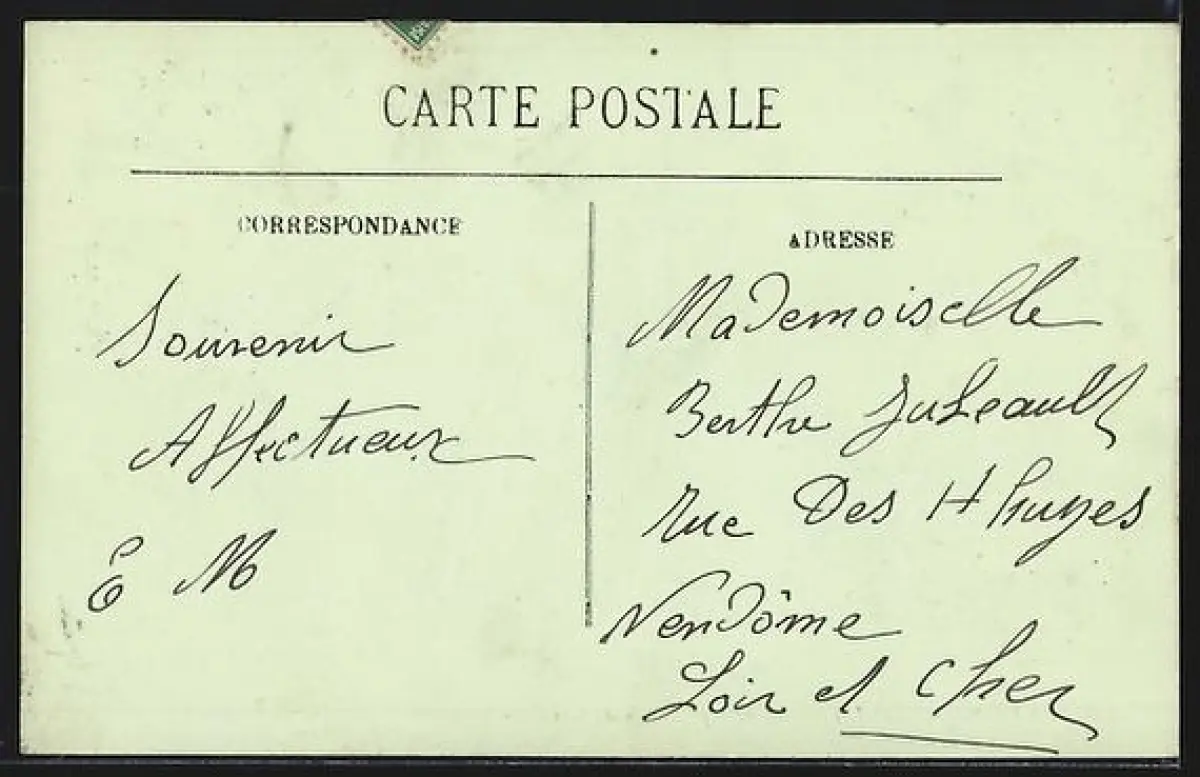 CARTE POSTALE
CORRESPONDANCE
ADRESSE
Souvenir
Affectueux
E M
Mademoiselle
Berthe
rue Des
Vendôme
Loir et Cher